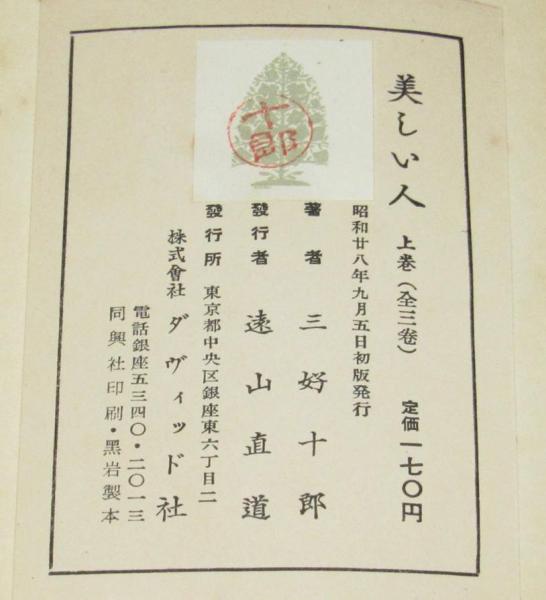 美しい人 上巻(全三卷) 定価一七〇円
昭和廿八年九月五日初版発行
著者 三好十郎
發行者 遠山直道
發行所 東京都中央区銀座東六丁目二
株式會社 ダヴィッド社
電話銀座五三四〇・二〇一三
同興社印刷・黒岩製本
十郎